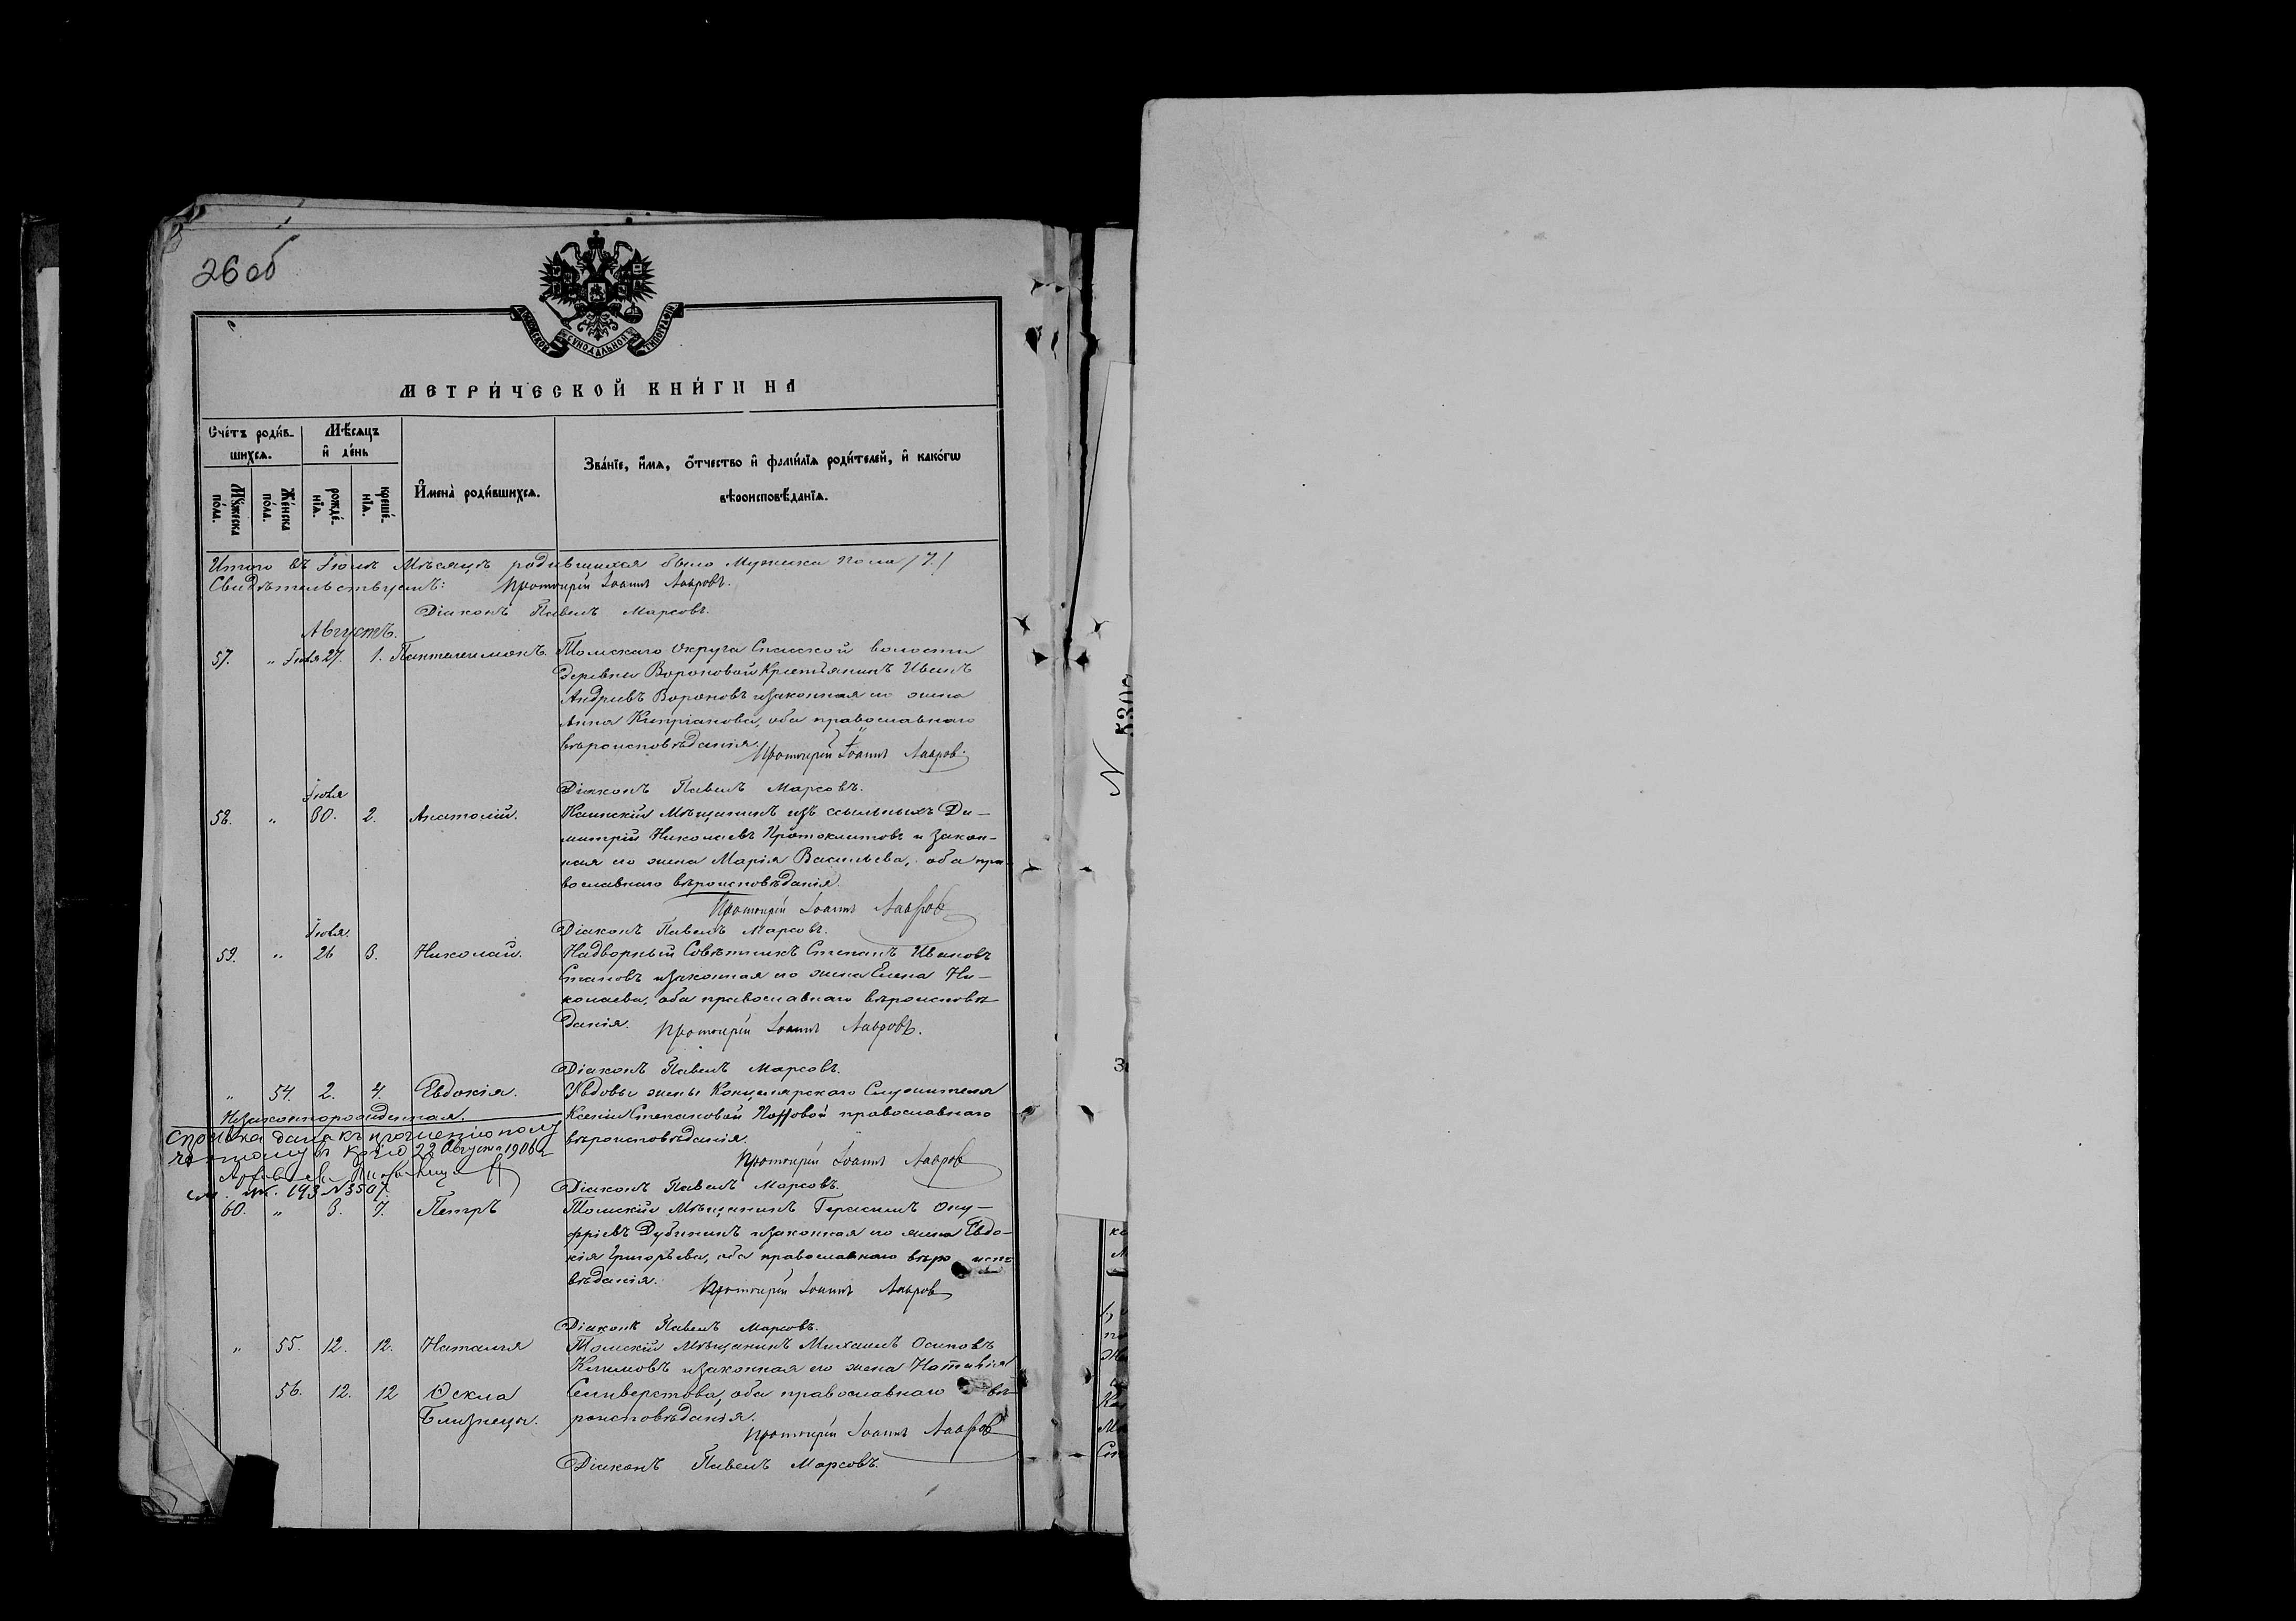 26 об
АУКОВСКОЙ СѴНОДАЛЬНОЙ ТИПОГРАФІИ
МЕТРИ́ЧЕСКОЙ КНИ́ГИ НА
Сче́тъ роди́в-
шихсѧ.
Мѣ́сѧцъ
и҆ де́нь
Мꙋ́жеска по́ла.
Же́нска по́ла.
рожде́-нїѧ.
креще́-нїѧ.
И҆мена̀ роди́вшихсѧ.
Зва́нїе, и҆́мѧ, ѻ҆́тчество и҆ фами́лїѧ роди́телей, и҆ како́гѡ
вѣроисповѣ́данїѧ.
Итого въ Іюлѣ Мѣсяцѣ родившихся было Мужска пола /7/
Свидѣтельствуемъ: Протоіерей Іоаннъ Лавровъ.
Діаконъ Павелъ Марсовъ.
Августъ.
57. " Іюля 27. 1. Пантелеимонъ. Томскаго Округа Спасской волости
деревни Вороновой Крестьянинъ Иванъ
Андреевъ Вороновъ и законная его жена
Анна Кипріанова, оба православнаго
вѣроисповѣданія. Протоіерей Іоаннъ Лавровъ.
Діаконъ Павелъ Марсовъ.
Іюля
58. " 30. 2. Анатолій. Каинскій Мѣщанинъ изъ ссыльныхъ Ди-
митрій Николаевъ Протоклитовъ и закон-
ная его жена Марія Васильева, оба пра-
вославнаго вѣроисповѣданія.
Протоіерей Іоаннъ Лавровъ
Діаконъ Павелъ Марсовъ.
Іюля.
59. " 26 3. Николай. Надворный Совѣтникъ Степанъ Ивановъ
Стаповъ и законная его жена Елена Ни-
колаева, оба православнаго вѣроисповѣ
данія. Протоіерей Іоаннъ Лавровъ.
Діаконъ Павелъ Марсовъ.
" 54. 2. 4. Евдокія. У вдовы жены Канцелярскаго Служителя
Незаконнорожденная. Ксеніи Степановой Поповой православнаго
вѣроисповѣданія.
Справка дана къ прошенію
22 Августа 1906 г
193 № 3507.
Протоіерей Іоаннъ Лавровъ
Діаконъ Павелъ Марсовъ.
60. " 3. 7. Петръ Томскій Мѣщанинъ Герасимъ Ону-
фріевъ Дубининъ и законная его жена Евдо-
кія Григорьева, оба православнаго вѣро испо
вѣданія. Протоіерей Іоаннъ Лавровъ
Діаконъ Павелъ Марсовъ.
" 55. 12. 12. Наталія Томскій Мѣщанинъ Михаилъ Осиповъ
Климовъ и законная его жена Наталія
56. 12. 12 Ѳекла Селиверстова, оба православнаго вѣ-
Близнецы. роисповѣданія.
Протоіерей Іоаннъ Лавровъ
Діаконъ Павелъ Марсовъ.